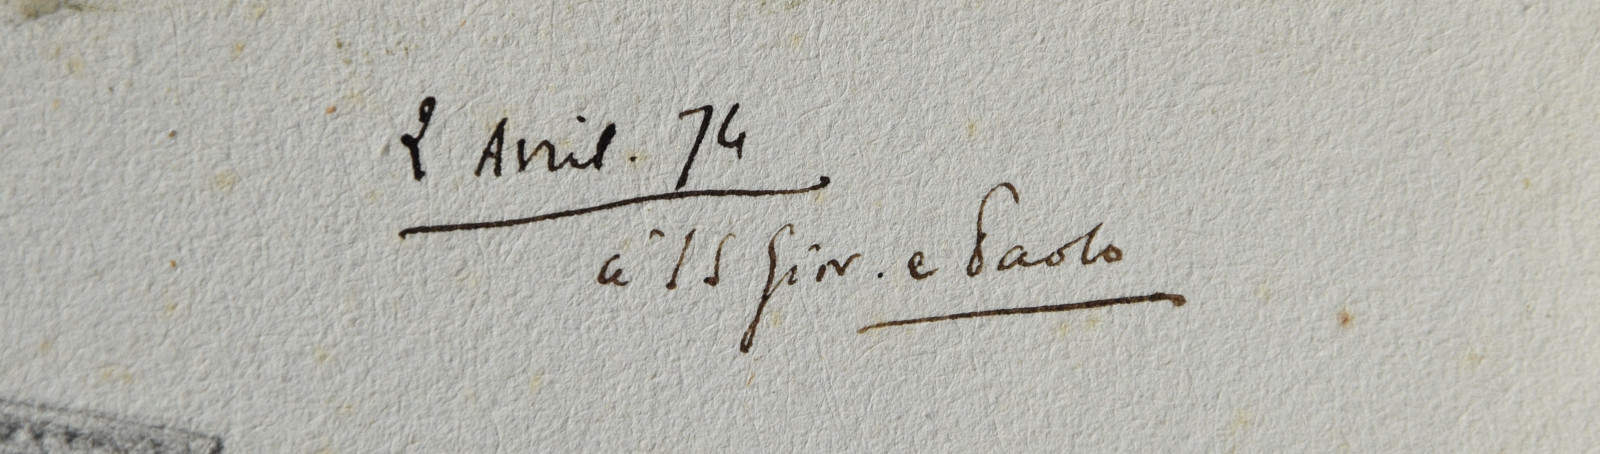 2 Avril. 74
à SS Giov. e Paolo